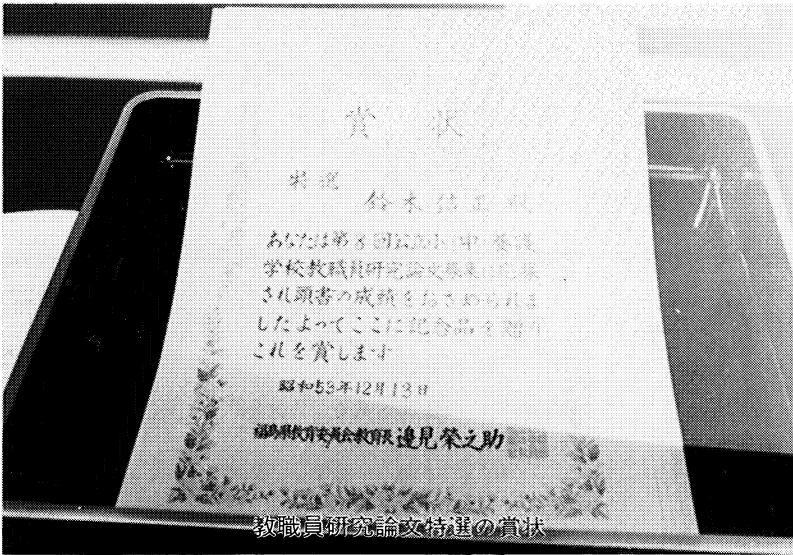 賞状
特選
鈴木信正殿
あなたは第8回公立小・中・養護
学校教職員研究論文募集に応募
され頭書の成績をおさめられま
したよってここに記念品を贈り
これを賞します
昭和53年12月13日
福島県教育委員会教育長 邊見榮之助
教職員研究論文特選の賞状